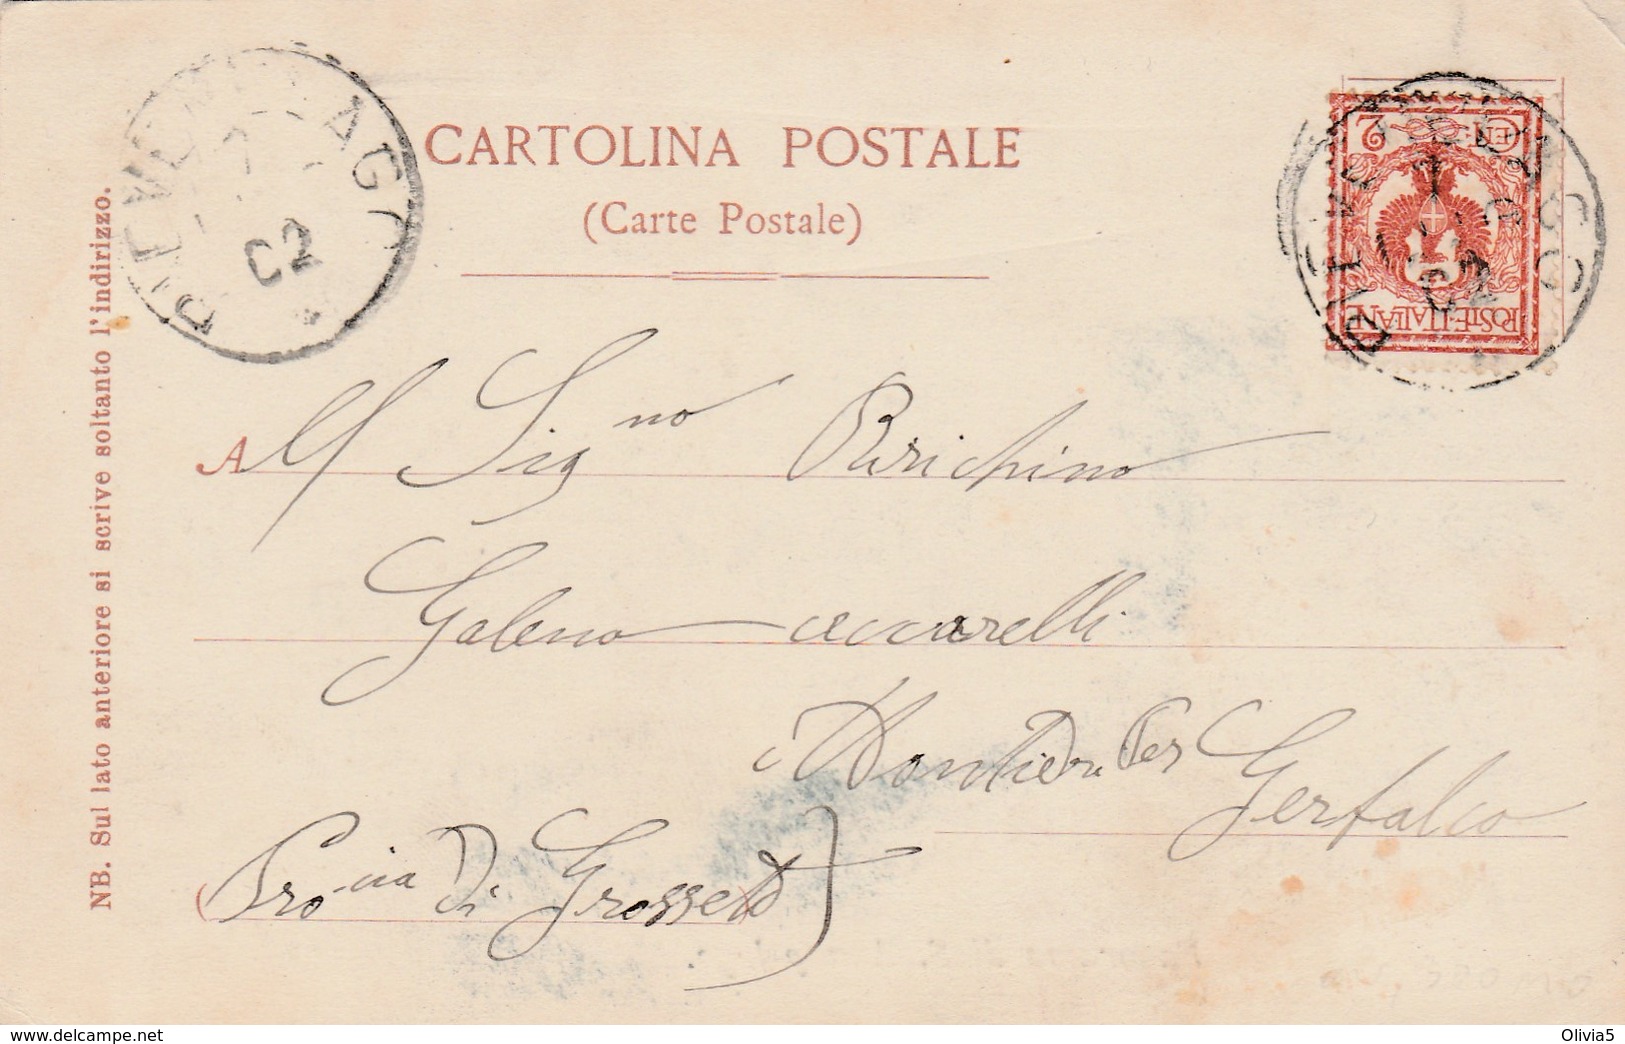 CARTOLINA POSTALE
(Carte Postale)
NB. Sul lato anteriore si scrive soltanto l'indirizzo.
02
CENT. 2
POSTE ITALIANE
All Sig.no Birichino
Galeno Ceccarelli
Montieri Per
Gerfalco
(Pro.cia Di Grosseto)
www.delcampe.net
Olivia5